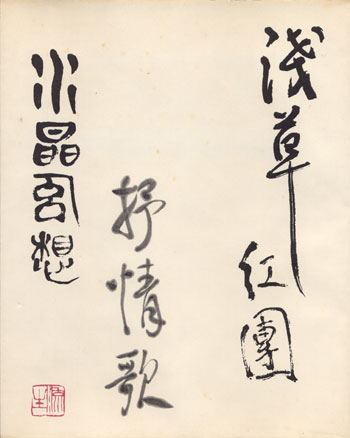 浅草紅團
抒情歌
水晶幻想